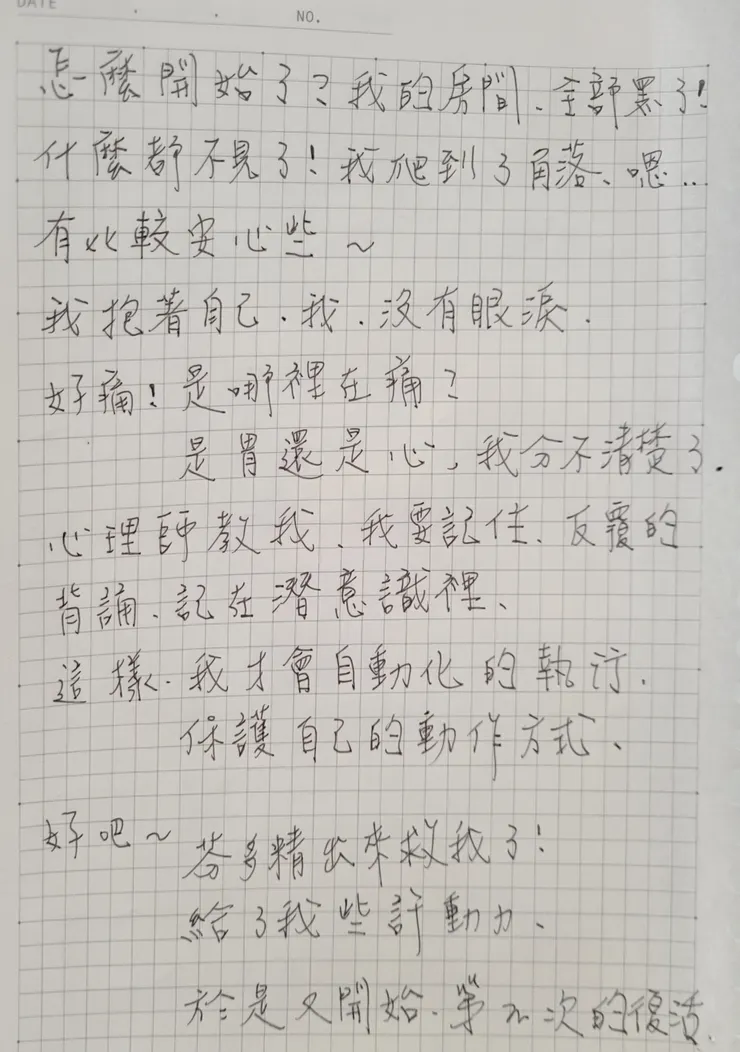 DATE . . NO.
怎麼開始了？我的房間、全部黑了！
什麼都不見了！我爬到了角落、嗯..
有比較安心些～
我抱著自己．我．沒有眼淚．
好痛！是哪裡在痛？
是胃還是心，我分不清楚了．
心理師教我、我要記住、反覆的
背誦、記在潛意識裡、
這樣．我才會自動化的執行．
保護自己的動作方式、
好吧～芬多精出來救我了！
給了我些許動力、
於是又開始．第n次的復活．